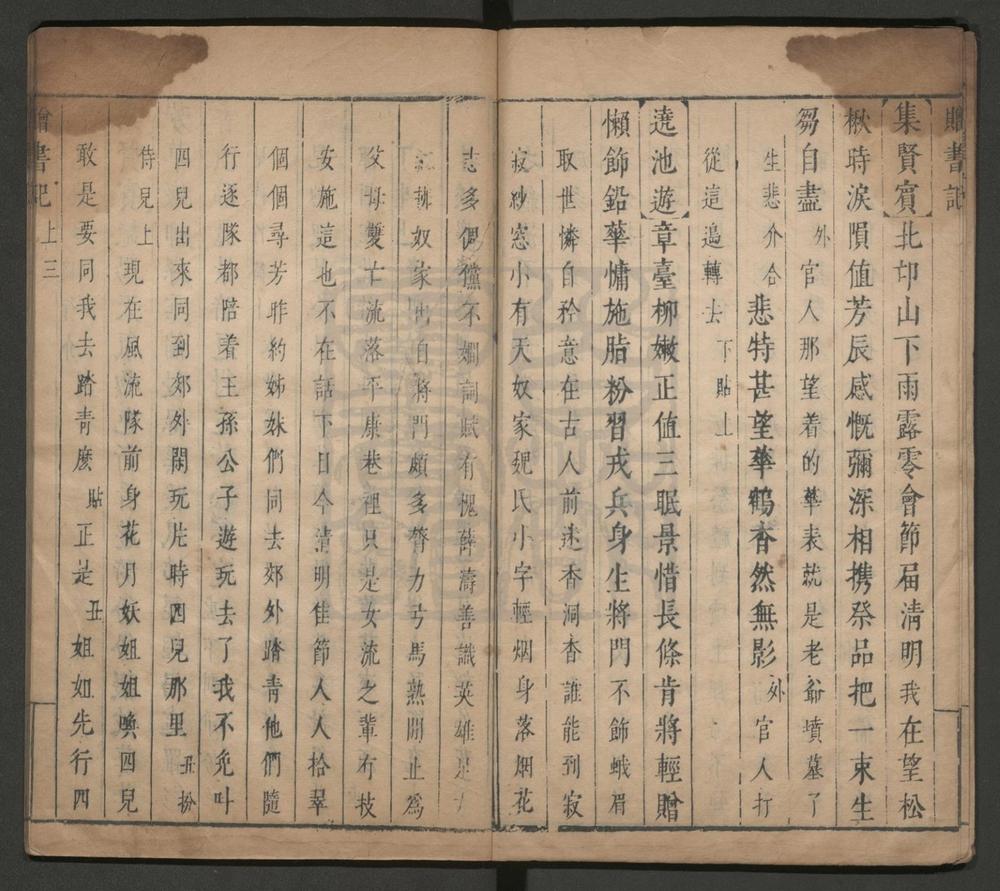 贈書記
【集賢賓】北邙山下雨露零會節屆清明我在望松
楸時淚隕值芳辰感慨彌深相携祭品把一束生
芻自盡外官人那望着的華表就是老爺墳墓了
生悲介合悲特甚望華鶴杳然無影外官人打
從這邉轉去下貼上
【遶池遊】章臺柳嫩正值三眠景惜長條肯將輕贈
懶飾鉛華慵施脂粉習戎兵身生將門不飾蛾眉
取世憐自矜意在古人前迷香洞杳誰能到寂
寂紗窓小有天奴家魏氏小字輕烟身落烟花
志多倜儻不嫺詞賦有愧薛濤善識英雄是
紅執奴家出自將門頗多膂力弓馬熟閒止爲
父母雙亡流落平康巷裡只是女流之輩有技
安施這也不在話下日今清明佳節人人拾翠
個個尋芳昨約姊妹們同去郊外踏青他們隨
行逐隊都陪着王孫公子遊玩去了我不免叫
四兒出來同到郊外閑玩片時四兒那里丑扮
侍兒上現在風流隊前身花月妖姐姐喚四兒
敢是要同我去踏青麽貼正是丑姐姐先行四
贈書記 上 三